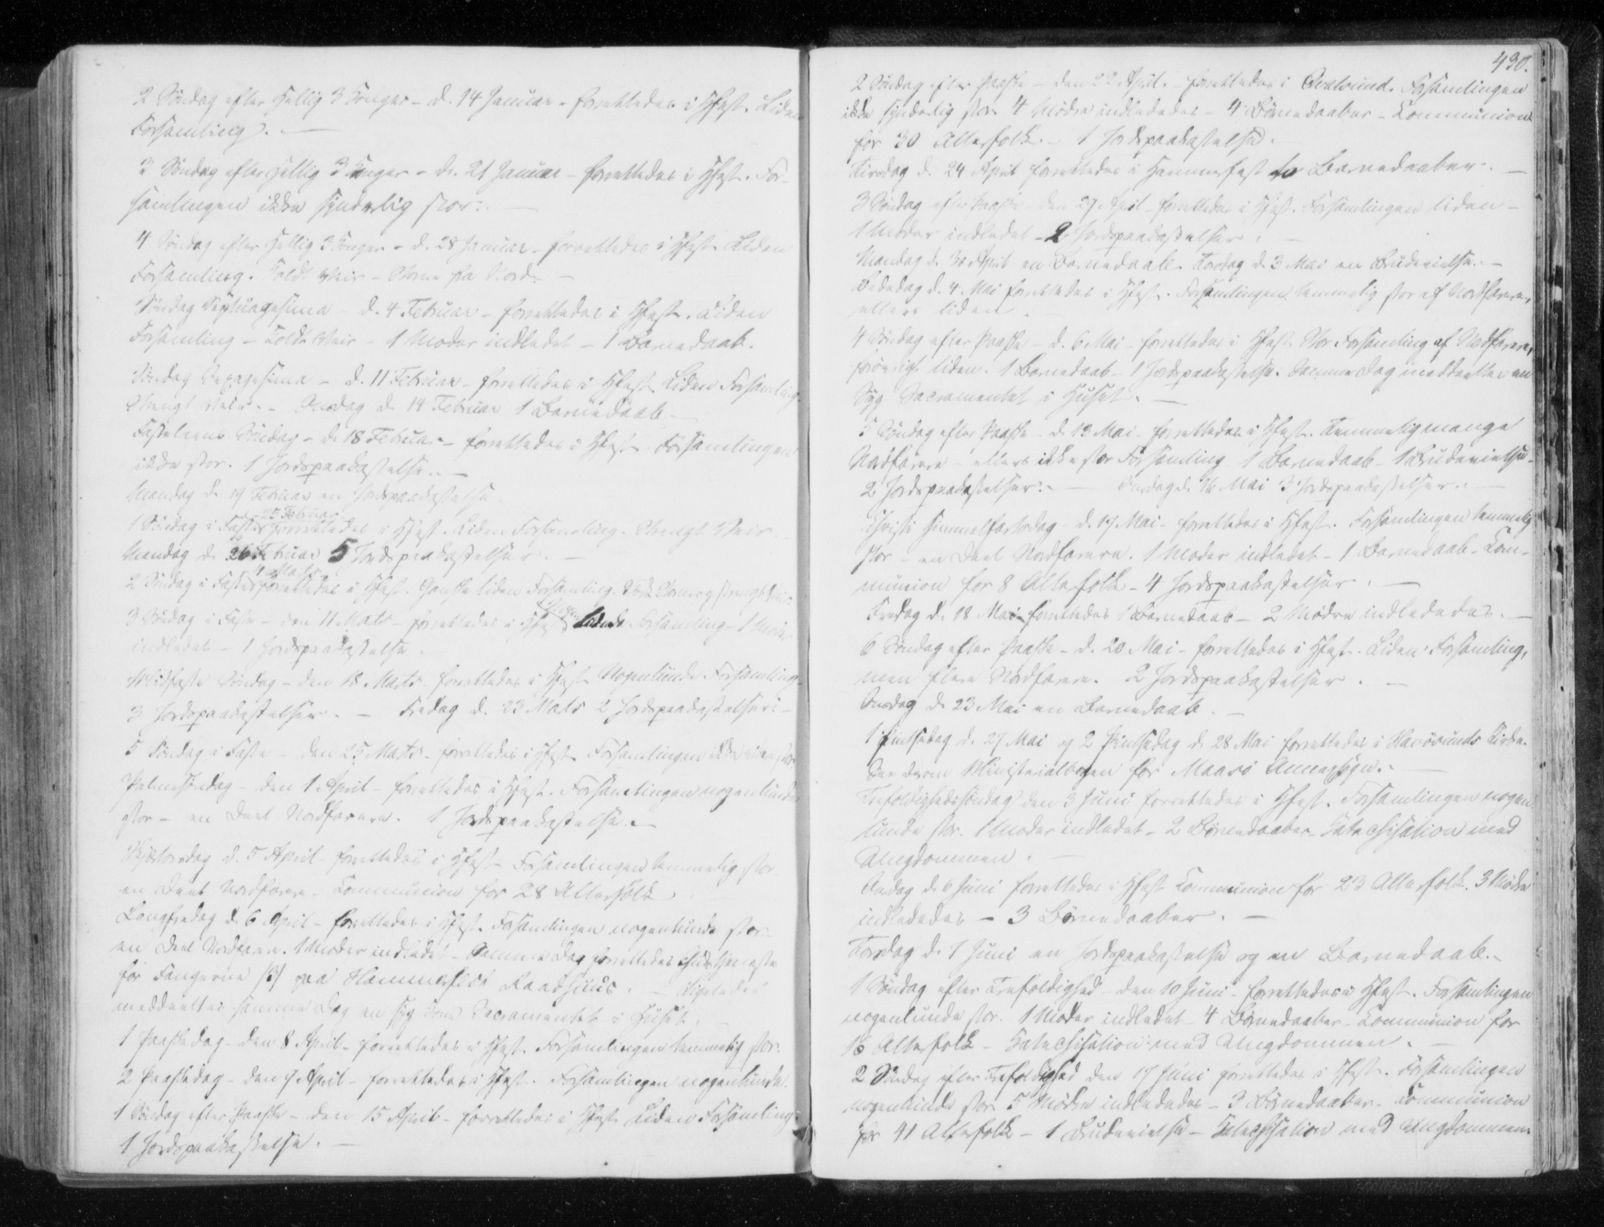 2 Søndag efter hellig 3 Konger - d. 14 Januar - forrettedes i Hfest. Liden
Forsamling. -
3 Søndag efter hellig 3 Konger - d. 21 Januar - forrettedes i Hfest. For-
samlingen ikke synderlig stor. -
4 Søndag efter hellig 3 Konger - d. 28 Januar - forrettedes i Hfest. Liden
Forsamling. Koldt Veir -
Søndag Septuagesima - d. 4 Februar - forrettedes i Hfest. Liden
Forsamling - Koldt Veir - 1 Moder indledet - 1 Barnedaab.
Søndag Sexagesima - d. 11 Februar - forrettedes i Hfest. Liden Forsamling.
Strengt Veir. - Onsdag d. 14 Februar 1 Barnedaab. -
Fastelavns Søndag - d. 18 Februar - forrettedes i Hfest. Forsamlingen
ikke stor. 1 Jordspaakastelse. -
Mandag d. 19 Februar en Jordspaakastelse.
25 Februar
1 Søndag i Faste forrettedes i Hfest. Liden Forsamling. Strengt Veir.
Mandag d. 26 Februar 5 Jordspaakastelser. -
4 Marts
2 Søndag i Faste forrettedes i Hfest. Ganske liden Forsamling.
3 Søndag i Faste - den 11 Marts - forrettedes i Hfest. Liden Forsamling - 1 Moder
indledet - 1 Jordspaakastelse.
Midfaste Søndag - den 18 Marts forrettedes i Hfest. Nogenlunde Forsamling.
3 Jordspaakastelser. - Fredag d. 23 Marts 2 Jordspaakastelser. -
5 Søndag i Faste - den 25 Marts - forrettedes i Hfest. Forsamlingen ikke stor
Palmesøndag - den 1 April - forrettedes i Hfest. Forsamlingen nogenlunde
stor - en Deel Nordfarere. 1 Jordspaakastelse. -
Skjærtorsdag d. 5 April - forrettedes i Hfest. Forsamlingen temmelig stor
en Deel Nordfarere. Communion for 28 Altersfolk.
Langfredag d. 6 April - forrettedes i Hfest. Forsamlingen nogenlunde stor -
en Deel Nordfarere. 1 Moder indledet - Samme Dag forrettedes Gudstjeneste
for Fangerne (3) paa Hammerfest Raadhuus. - Ligeledes
meddeeltes samme Dag en Syg Sacramentet i Huset.
1 Paaskedag - den 8 April - forrettedes i Hfest. Forsamlingen temmelig stor.
2 Paaskedag - den 9 April - forrettedes i Hfest. Forsamlingen nogenlunde.
1 Søndag efter Paaske - den 15 April - forrettedes i Hfest. Liden Forsamling.
1 Jordspaakastelse. -
430.
2 Søndag efter Paaske - den 22 April - forrettedes i Qvalsund. Forsamlingen
ikke synderlig stor. 4 Mødre indlededes - 4 Børnedaaber - Communion
for 30 Altersfolk. - 1 Jordspaakastelse.
Tirsdag d. 24 April forrettedes i Hammerfest to Barnedaaber. -
3 Søndag efter Paaske - den 29 April - forrettedes i Hfest. Forsamlingen liden -
1 Moder indledet - 2 Jordspaakastelser. -
Mandag d. 30 April en Barnedaab. Torsdag d. 3 Mai en Brudevielse. -
Bededag d. 4 Mai forrettedes i Hfest. Forsamlingen temmelig stor af Nordfarere,
ellers liden.
4 Søndag efter Paaske - d. 6 Mai - forrettedes i Hfest. Stor Forsamling af Nordfarere,
forøvrigt liden. 1 Barnedaab - 1 Jordspaakastelse. Samme Dag meddeeltes en
Syg Sacramentet i Huset. -
5 Søndag efter Paaske - d. 13 Mai - forrettedes i Hfest. Temmelig mange
Nordfarere - ellers ikke stor Forsamling. 1 Barnedaab - 1 Brudevielse -
2 Jordspaakastelser. - Onsdag d. 16 Mai 3 Jordspaakastelser. -
Christi Himmelfartsdag - d. 17 Mai - forrettedes i Hfest. Forsamlingen temmelig
stor - en Deel Nordfarere. 1 Moder indledet - 1 Barnedaab - Com-
munion for 8 Altersfolk - 4 Jordspaakastelser. -
Fredag d. 18 Mai forrettedes 1 Barnedaab - 2 Mødre indlededes. -
6 Søndag efter Paaske - d. 20 Mai - forrettedes i Hfest. Liden Forsamling,
men flere Nordfarere. 2 Jordspaakastelser. -
Onsdag d. 23 Mai en Barnedaab. -
1 Pintsedag d. 27 Mai og 2 Pintsedag d. 28 Mai forrettedes i Havøsunds Kirke.
See derom Ministerialbogen for Maasø Annexsogn. -
Trefoldighedssøndag den 3 Juni forrettedes i Hfest. Forsamlingen nogen-
lunde stor. 1 Moder indledet - 2 Børnedaaber. Catechisation med
Ungdommen. -
Onsdag d. 6 Juni forrettedes i Hfest Communion for 23 Altersfolk. 3 Mødre
indlededes - 3 Børnedaaber. -
Torsdag d. 7 Juni en Jordspaakastelse og en Barnedaab. -
1 Søndag efter Trefoldighed - den 10 Juni - forrettedes i Hfest. Forsamlingen
nogenlunde stor. 1 Moder indledet - 4 Børnedaaber - Communion for
16 Altersfolk - Catechisation med Ungdommen. -
2 Søndag efter Trefoldighed den 17 Juni forrettedes i Hfest. Forsamlingen
nogenlunde stor. 5 Mødre indlededes - 3 Børnedaaber - Communion
for 41 Altersfolk - 1 Brudevielse - Catechisation med Ungdommen.